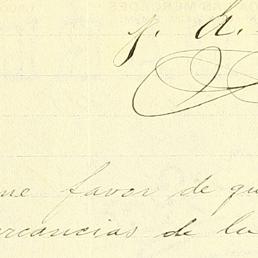 p. d.
me favor de qu
rcancias de la